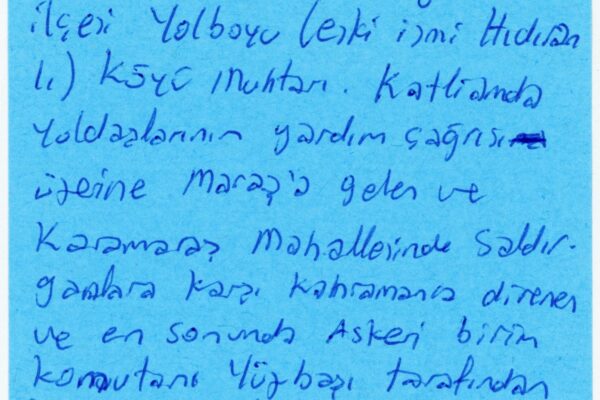 ilçesi Yolboyu (eski ismi Hıdıran
lı) Köyü Muhtarı. Katliamda
Yoldaşlarının yardım çağrısı
üzerine Maraş'a gelen ve
Karamaraş Mahallesinde Saldır-
ganlara karşı kahramanca direnen
ve en sonunda Askeri birim
komutanı Yüzbaşı tarafından